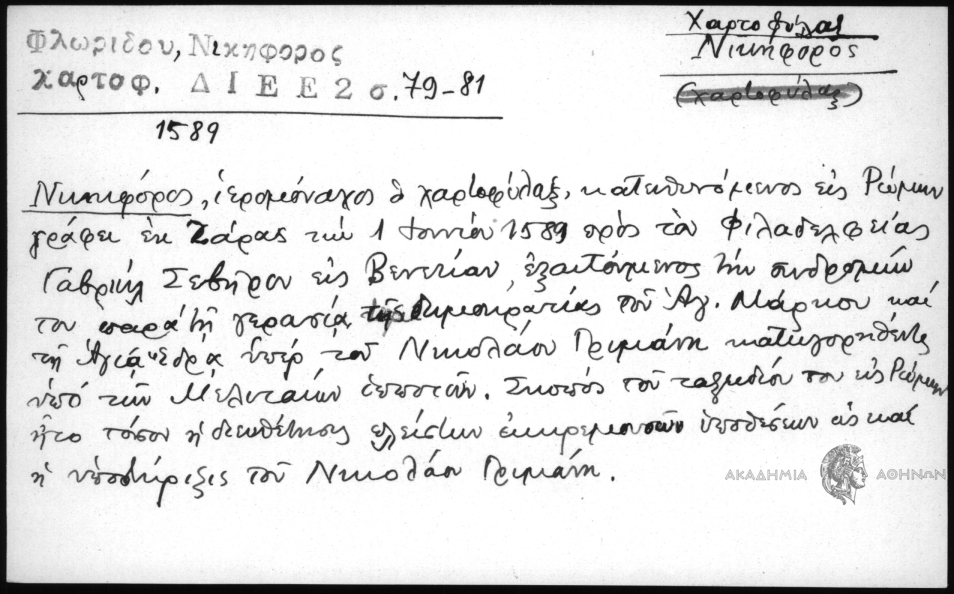 Φλωρίδου, Νικηφορος
χαρτοφ. ΔΙΕΕ2 σ. 79-81
Χαρτοφύλαξ
Νικηφόρος
(χαρτοφύλαξ)
1589
Νικηφόρος, ἱερομόναχος ὁ χαρτοφύλαξ, κατευθυνόμενος εἰς Ρώμην
γράφει ἐκ Ζάρας τήν 1 Ἰουνίου 1589 πρός τὸν Φιλαδελφείας
Γαβριήλ Σεβῆρον εἰς Βενετίαν, ἐξαιτούμενος τήν συνδρομήν
του παρά τῇ γερουσίᾳ τῆς Δημοκρατίας τοῦ Ἁγ. Μάρκου καί
τῇ Ἁγίᾳ Ἕδρᾳ ὑπέρ τοῦ Νικολάου Πριμιάνη κατηγορηθέντος
ὑπό τῶν Μελιταίων. Σκοπός τοῦ ταξιδίου του εἰς Ρώμην
ἦτο τόσον ἡ διευθέτησις ἐκκρεμουσῶν ὑποθέσεων ὡς καί
ἡ ὑποστήριξις τοῦ Νικολάου Πριμιάνη.
ΑΚΑΔΗΜΙΑ ΑΘΗΝΩΝ